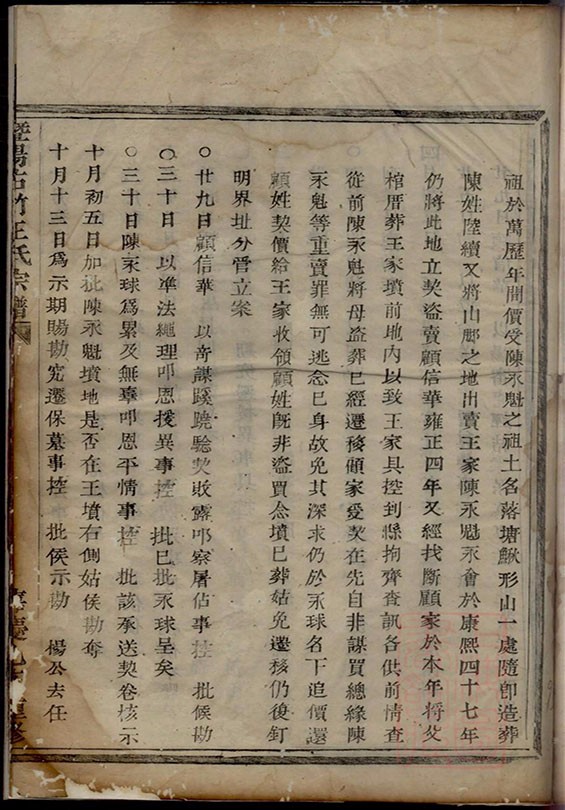 祖於萬歷年間價受陳永魁之祖土名落塘鰍形山一處隨卽造葬
陳姓陸續又將山脚之地出賣王家陳永魁永會於康熙四十七年
仍將此地立契盜賣顧信華雍正四年又經找斷顧家於本年將父
棺厝葬王家墳前地內以致王家具控到縣拘齊查訊各供前情查
從前陳永魁將母盜葬已經遷移顧家受契在先自非謀買總緣陳
永魁等重賣罪無可逃念已身故免其深求仍於永球名下追價還
顧姓契價給王家收領顧姓旣非盜買念墳已葬姑免遷移仍復釘
明界址分管立案
○廿九日顧信華 以奇謀蹊蹺騐契敗露叩察屠佔事控 批候勘
○三十日 以準法繩理叩恩援異事控 批已批永球呈矣
○三十日陳永球爲累及無辜叩恩平情事控 批該承送契卷核示
十月初五日加批陳永魁墳地是否在王墳右側姑侯勘奪
十月十三日爲示期賜勘究遷保墓事控 批侯示勘 楊公去任
暨陽古竹王氏宗譜
重修